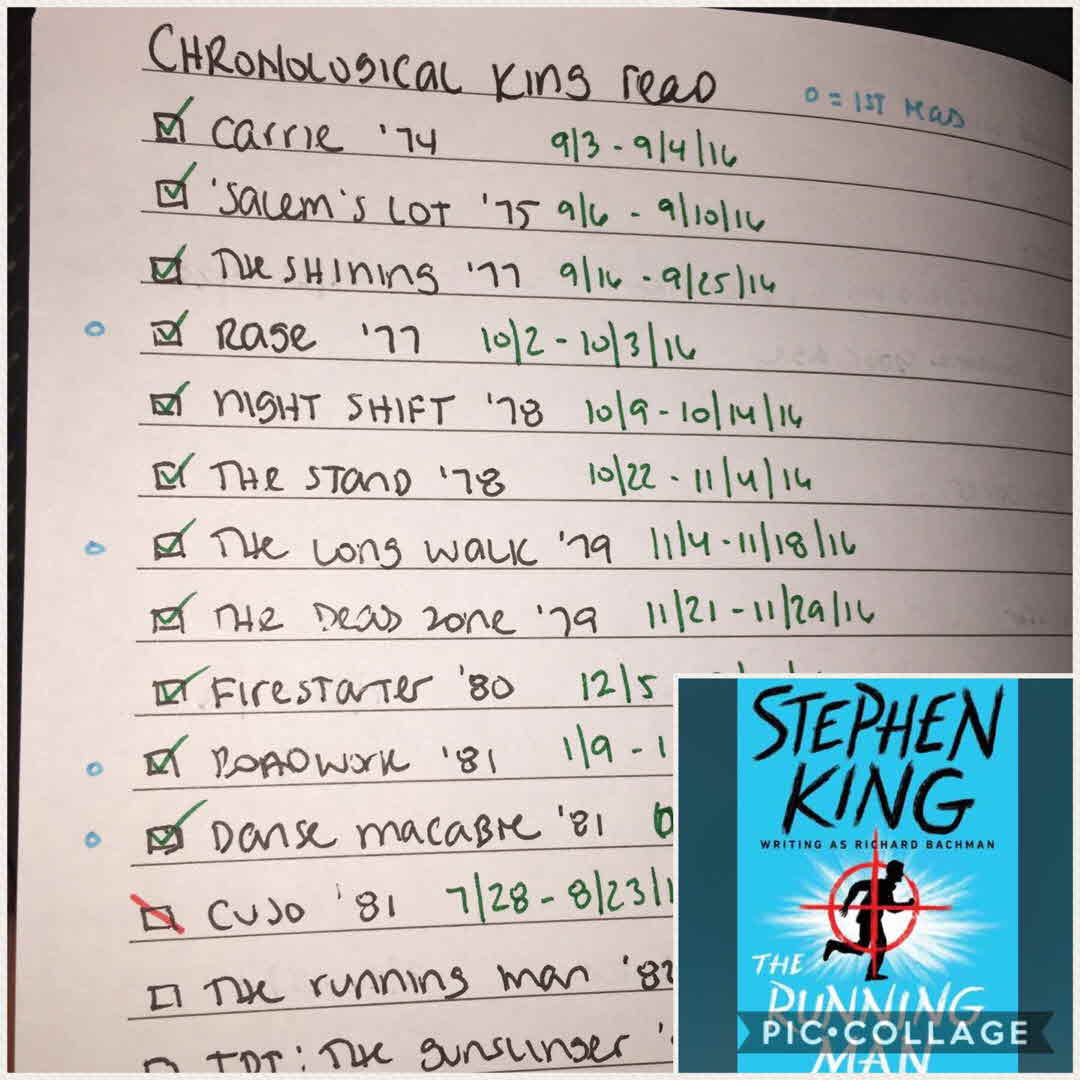 CHRONOLOGICAL KING READ
O = 1ST READ
CARRIE '74 9/3 - 9/4/16
'SALEM'S LOT '75 9/6 - 9/10/16
THE SHINING '77 9/16 - 9/25/16
O RAGE '77 10/2 - 10/3/16
NIGHT SHIFT '78 10/9 - 10/14/16
THE STAND '78 10/22 - 11/4/16
O THE LONG WALK '79 11/4 - 11/18/16
THE DEAD ZONE '79 11/21 - 11/29/16
FIRESTARTER '80 12/5
O ROADWORK '81 1/9 - 1
O DANSE MACABRE '81
CUJO '81 7/28 - 8/23/1
THE RUNNING MAN '82
TDT: THE GUNSLINGER '
STEPHEN
KING
WRITING AS RICHARD BACHMAN
THE
RUNNING
MAN
PIC•COLLAGE